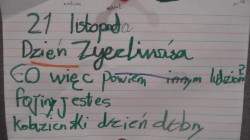 21 listopada
Dzień Życzliwości
CO więc powiem innym ludziom?
fajny jesteś
dzień dobry